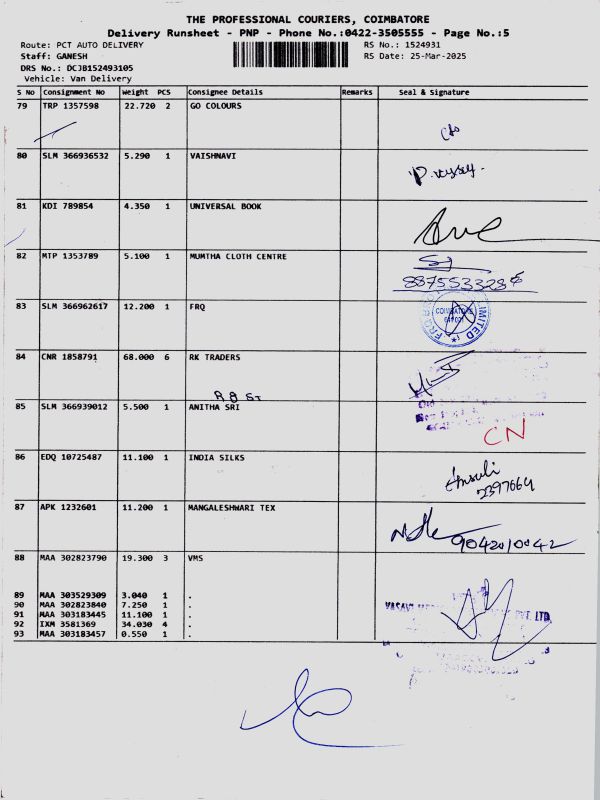 THE PROFESSIONAL COURIERS, COIMBATORE
Delivery Runsheet - PNP - Phone No.:0422-3505555 - Page No.:5
Route: PCT AUTO DELIVERY RS No.: 1524931
Staff: GANESH RS Date: 25-Mar-2025
DRS No.: DCJB152493105
Vehicle: Van Delivery
S No Consignment No Weight PCS Consignee Details Remarks Seal & Signature
79 TRP 1357598 22.720 2 GO COLOURS
80 SLM 366936532 5.290 1 VAISHNAVI
81 KDI 789854 4.350 1 UNIVERSAL BOOK
82 MTP 1353789 5.100 1 MUMTHA CLOTH CENTRE
83 SLM 366962617 12.200 1 FRQ
COIMBATORE
84 CNR 1858791 68.000 6 RK TRADERS
R B ST
85 SLM 366939012 5.500 1 ANITHA SRI
CN
86 EDQ 10725487 11.100 1 INDIA SILKS
2397664
87 APK 1232601 11.200 1 MANGALESHWARI TEX
9042010042
88 MAA 302823790 19.300 3 VMS
89 MAA 303529309 3.040 1 .
90 MAA 302823840 7.250 1 .
91 MAA 303183445 11.100 1 .
92 IXM 3581369 34.030 4 .
93 MAA 303183457 0.550 1 .
VASAVI PVT. LTD.